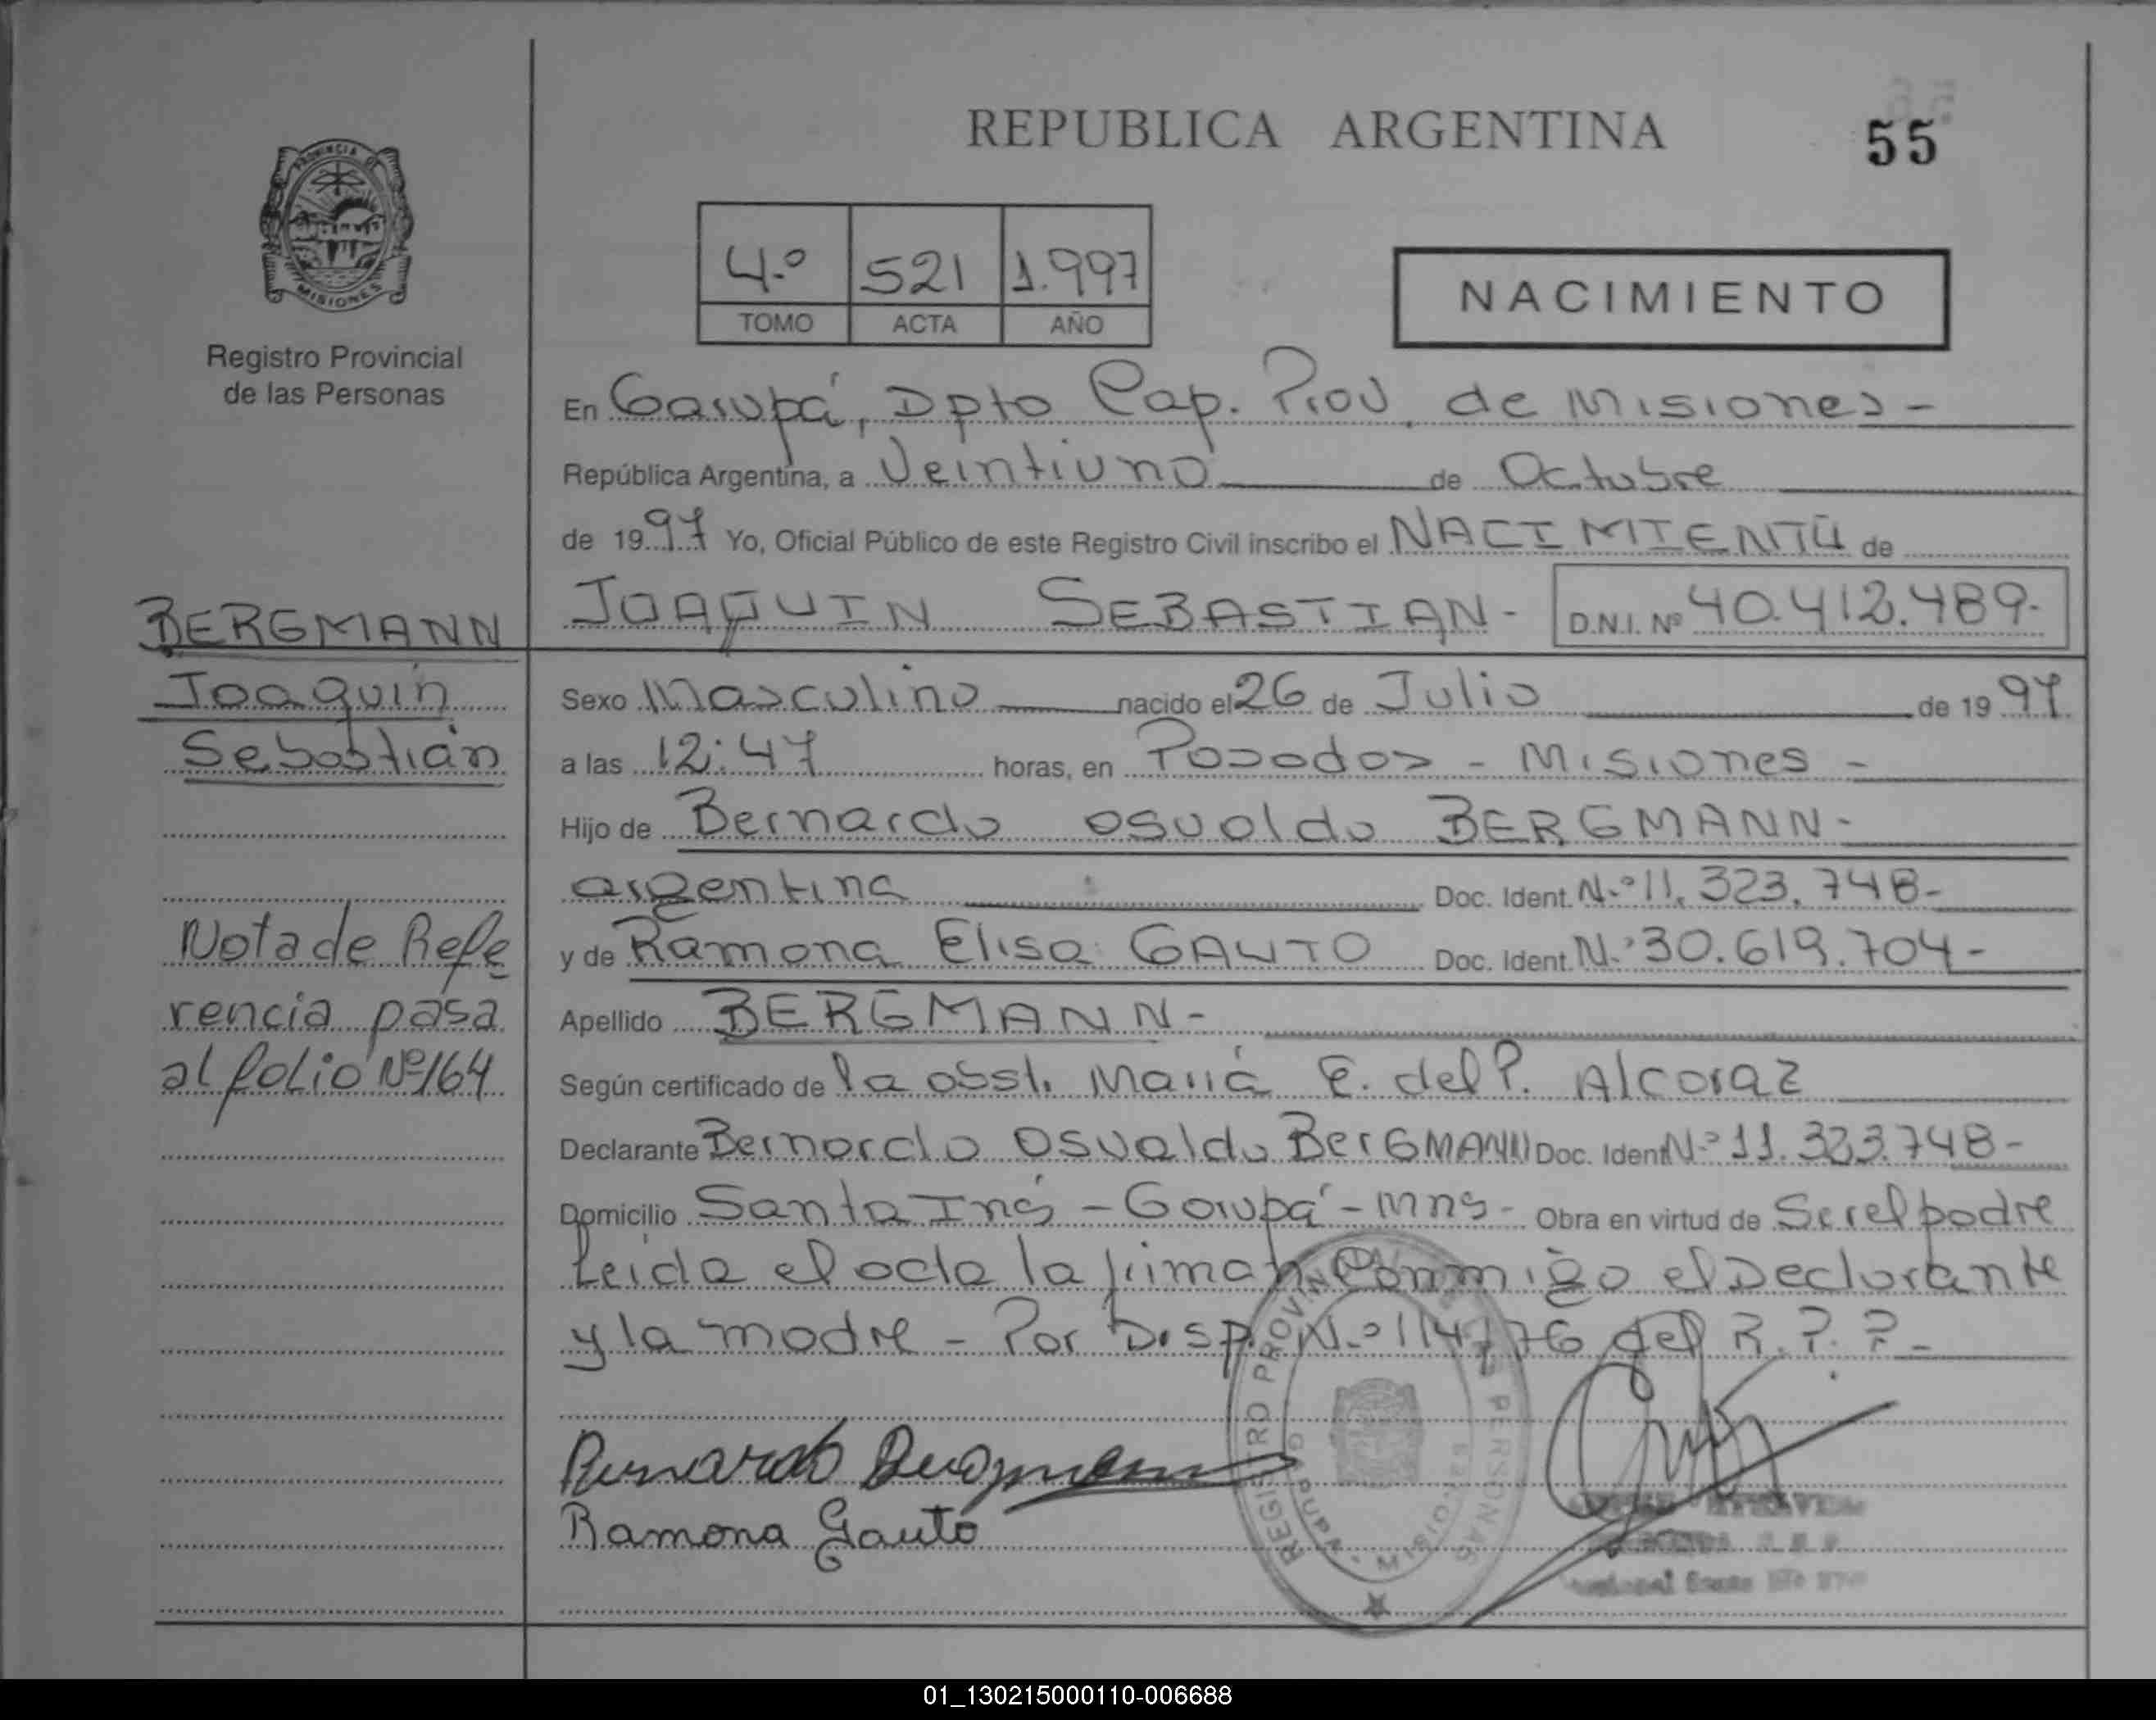 REPUBLICA ARGENTINA
55
PROVINCIA DE
MISIONES
Registro Provincial
de las Personas
4.º 521 1.997
TOMO ACTA AÑO
NACIMIENTO
En Garupá, Dpto Cap. Prov. de Misiones -
República Argentina, a Veintiuno de Octubre
de 1997 Yo, Oficial Público de este Registro Civil inscribo el NACIMIENTO de
JOAQUIN SEBASTIAN - D.N.I. Nº 40.412.489-
BERGMANN
Joaquín
Sebastián
Sexo Masculino nacido el 26 de Julio de 1997
a las 12:47 horas, en Posadas - Misiones -
Hijo de Bernardo Osvaldo BERGMANN -
argentina Doc. Ident. N.º 11.323.748-
y de Ramona Elisa GAUTO Doc. Ident. N.º 30.619.704-
Apellido BERGMANN -
Según certificado de la obst. María E. del P. Alcaraz
Declarante Bernardo Osvaldo BerGMANN Doc. Ident N.º 11.323.748-
Domicilio Santa Inés - Garupá - Mns - Obra en virtud de Ser el padre
Leida el acta la firman Conmigo el Declarante
y la madre - Por Disp. N.º 114/76 del R.P.P. -
Nota de Refe
rencia pasa
al folio Nº 164
Bernardo Bergmann
Ramona Gauto
REGISTRO PROVINCIAL PERSONAS
01_130215000110-006688